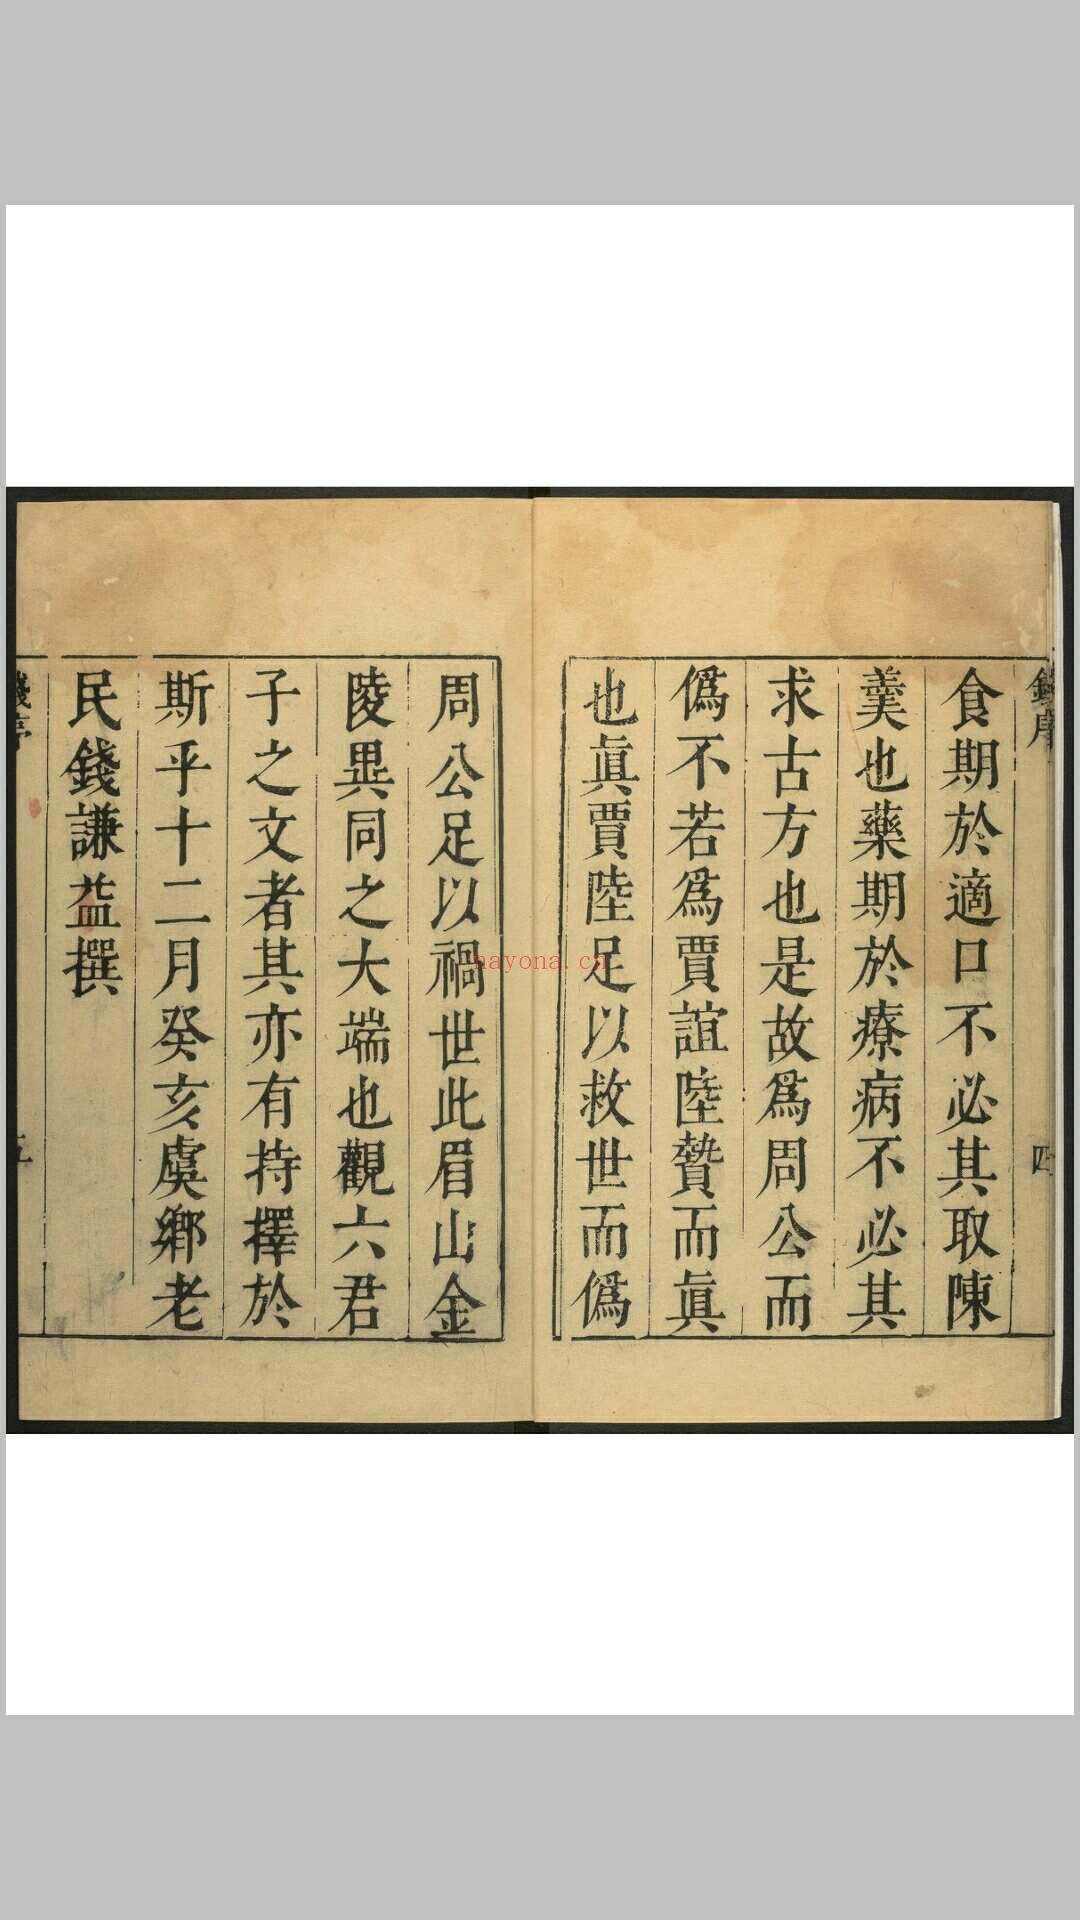 錢序
四
食期於適口不必其取陳
羹也藥期於療病不必其
求古方也是故爲周公而
僞不若爲賈誼陸贄而眞
也眞賈陸足以救世而僞
周公足以禍世此眉山金
陵異同之大端也觀六君
子之文者其亦有持擇於
斯乎十二月癸亥虞鄉老
民錢謙益撰
錢序
五
nayona.cn